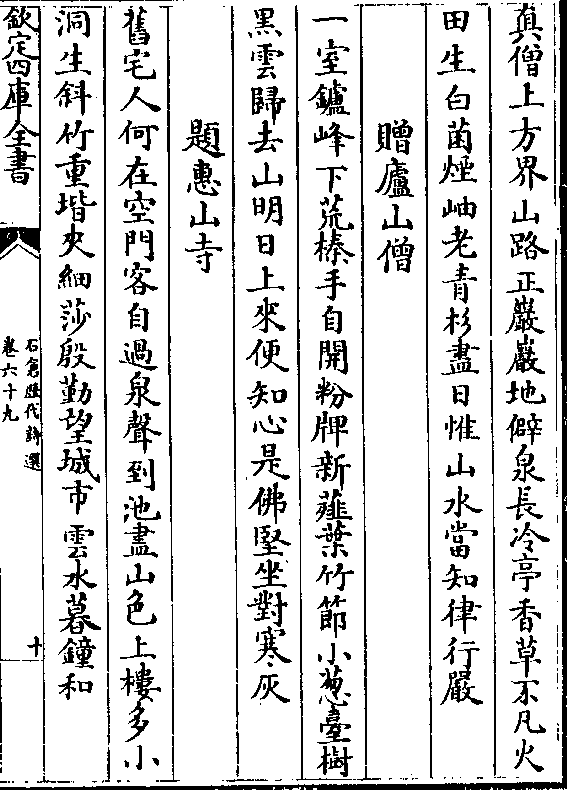 真僧上方界山路正巖巖地僻泉長冷亭香草不凡火
田生白菌煙岫老青杉盡日惟山水當知律行嚴
贈廬山僧
一室鑪峰下荒榛手自開粉牌新薤葉竹節小葱臺樹
黑雲歸去山明日上來便知心是佛堅坐對寒灰
題惠山寺
舊宅人何在空門客自過泉聲到池盡山色上樓多小
洞生斜竹重堦夾細莎殷勤望城市雲水暮鐘和
欽定四庫全書
石倉歷代詩選
卷六十九
十